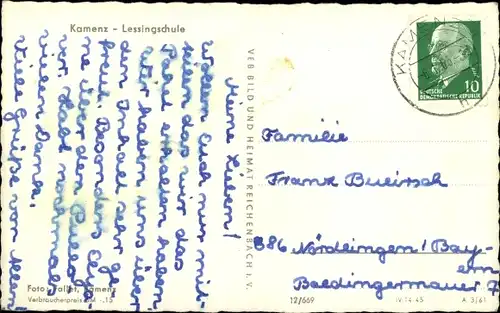 Kamenz - Lessingschule
Meine Lieben!
Wollen Euch nur mit-
teilen das wir das
Paket erhalten haben
Wir haben uns über
den Inhalt sehr ge-
freut. Besonders
ne über den
vir. Habt nochmals
vielen Dank.
Viele Grüße von Allen
Foto: Tallat, Kamenz
Verbraucherpreis DM -.15
VEB BILD UND HEIMAT REICHENBACH i. V.
KAMENZ
10
DEUTSCHE
DEMOKRATISCHE REPUBLIK
Familie
Franz Bueirsch
886 Nördlingen/Bay-
ern
Baldingermauer 7
12/669
IV-14-45
A 3/61